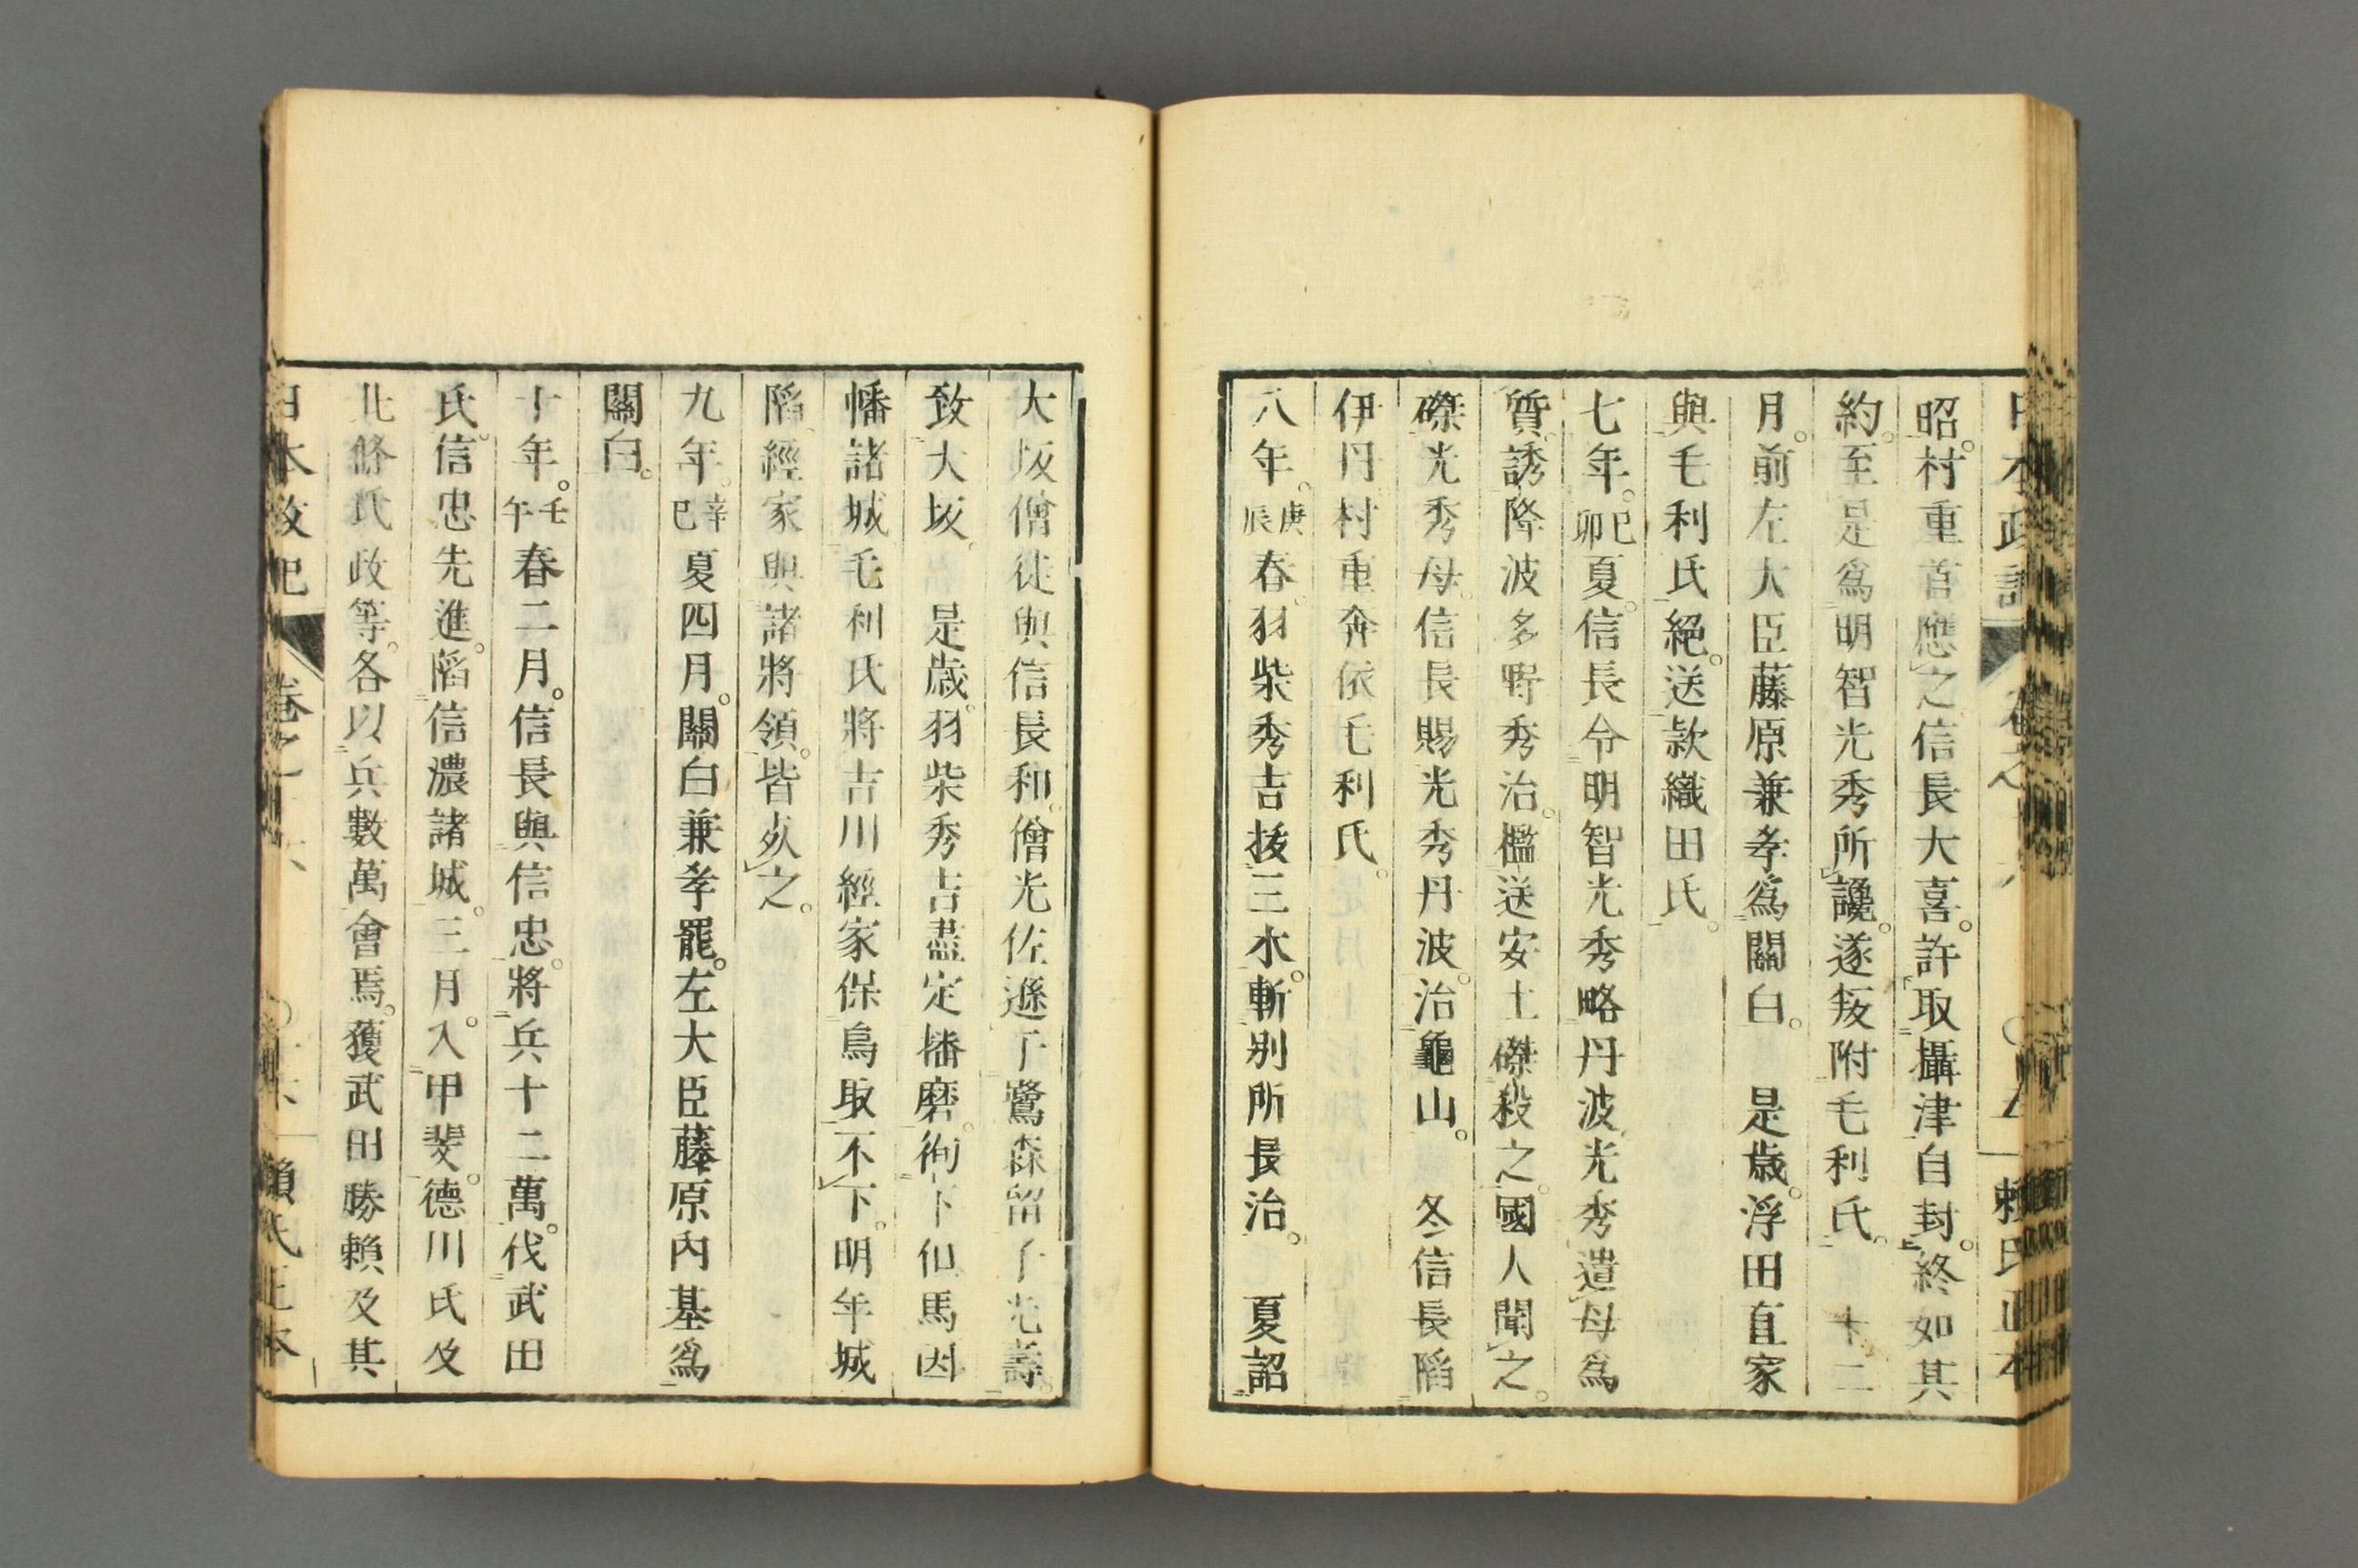 日本政記 卷之十六 賴氏正本
昭。村重首應之。信長大喜。許取攝津自封。終如其
約。至是爲明智光秀所讒。遂叛附毛利氏。 十二
月。前左大臣藤原兼孝爲關白。 是歲。浮田直家
與毛利氏絕。送款織田氏。
七年。己卯夏。信長令明智光秀略丹波。光秀遣母爲
質。誘降波多野秀治。檻送安土磔殺之。國人聞之。
磔光秀母。信長賜光秀丹波。治龜山。 冬信長陷
伊丹。村重奔依毛利氏。
八年。庚辰春。羽柴秀吉拔三木。斬別所長治。 夏詔
大坂僧徒與信長和。僧光佐遜于鷺森。留子光壽。
致大坂。 是歲。羽柴秀吉盡定播磨。徇下但馬因
幡諸城。毛利氏將吉川經家保鳥取不下。明年城
陷。經家與諸將領。皆死之。
九年。辛巳夏四月。關白兼孝罷。左大臣藤原內基爲
關白。
十年。壬午春二月。信長與信忠。將兵十二萬。伐武田
氏。信忠先進。陷信濃諸城。三月。入甲斐。德川氏及
北條氏政等。各以兵數萬會焉。獲武田勝賴及其
日本政記 卷之十六 賴氏正本